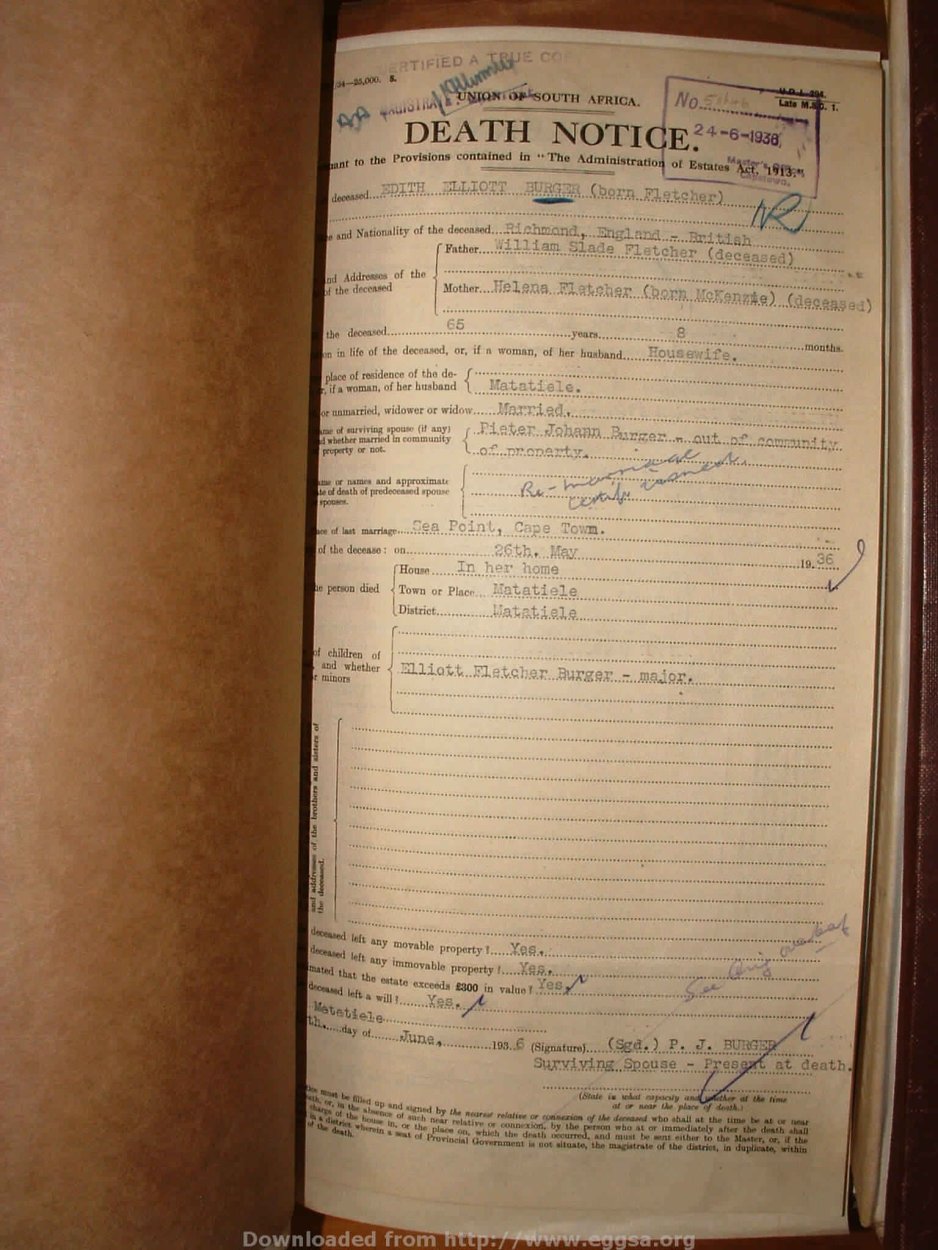 CERTIFIED A TRUE COP
/34—25,000. S.
U.D.J. 294.
Late M.S.C. 1.
UNION OF SOUTH AFRICA.
No.
DEATH NOTICE.
24-6-1936
Master's
uant to the Provisions contained in "The Administration of Estates Act, 1913."
deceased...EDITH ELLIOTT BURGER (born Fletcher)
e and Nationality of the deceased...Richmond, England - British
Father...William Slade Fletcher (deceased)
nd Addresses of the
of the deceased
Mother...Helena Fletcher (born McKenzie) (deceased)
the deceased...65...years...8...months.
on in life of the deceased, or, if a woman, of her husband...Housewife.
place of residence of the de-
r, if a woman, of her husband Matatiele.
or unmarried, widower or widow...Married.
ame of surviving spouse (if any)
d whether married in community
property or not.
Pieter Johann Burger - out of community
of property.
ame or names and approximate
te of death of predeceased spouse
spouses.
Re-marriage
ace of last marriage...Sea Point, Cape Town.
of the decease: on...26th. May...19 36
House...In her home
he person died Town or Place...Matatiele
District...Matatiele
of children of
, and whether
r minors
Elliott Fletcher Burger - major.
and addresses of the brothers and sisters of
the deceased.
deceased left any movable property?...Yes.
deceased left any immovable property?...Yes.
mated that the estate exceeds £300 in value? Yes.
deceased left a will?...Yes.
See Orig overleaf
Matatiele
th...day of...June,...193 6 (Signature)...(Sgd.) P. J. BURGER
Surviving Spouse - Present at death.
(State in what capacity and whether at the time
at or near the place of death.)
tice must be filled up and signed by the nearest relative or connexion of the deceased who shall at the time be at or near
ath, or, in the absence of such near relative or connexion, by the person who at or immediately after the death shall
charge of the house in, or the place on, which the death occurred, and must be sent either to the Master, or, if the
in a district wherein a seat of Provincial Government is not situate, the magistrate of the district, in duplicate, within
of the death.
Downloaded from http://www.eggsa.org